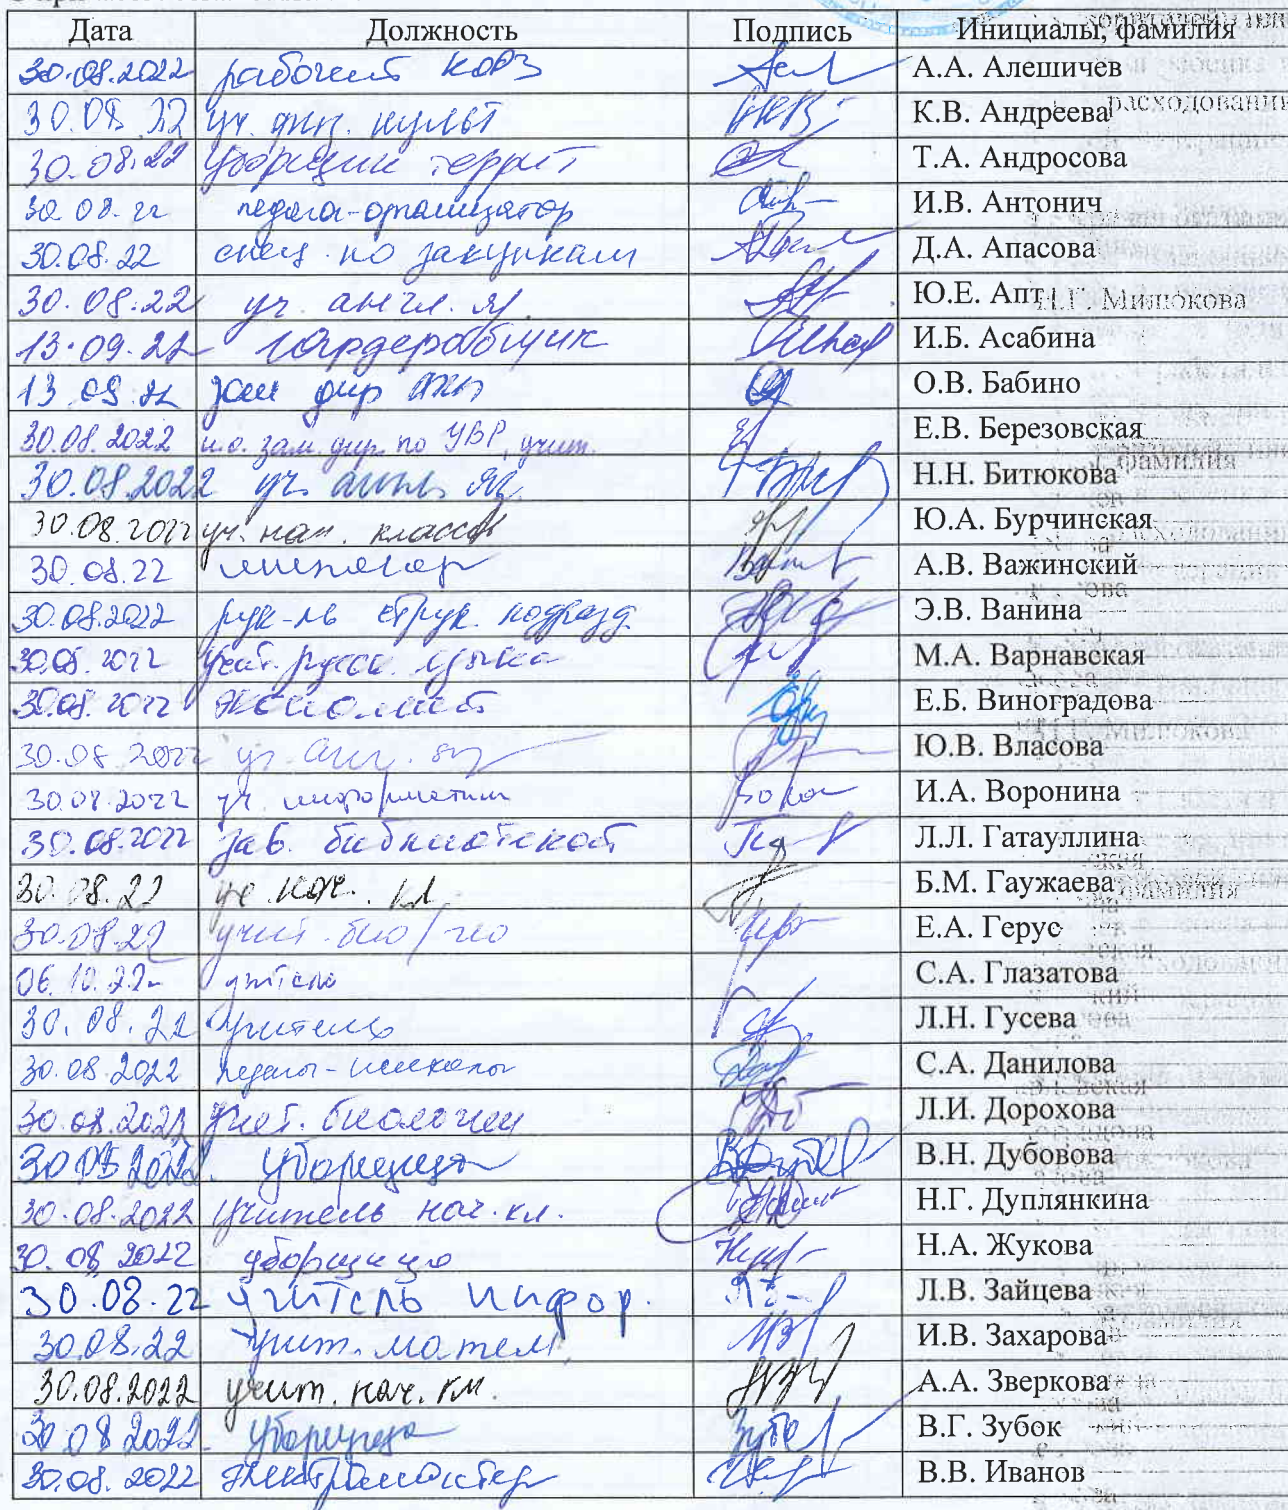 Дата Должность Подпись Инициалы, фамилия
30.08.2022 рабочий КОРЗ А.А. Алешичев
30.08.22 уч. физ. культ К.В. Андреева
30.08.22 Уборщик террит Т.А. Андросова
30.08.22 педагог-организатор И.В. Антонич
30.08.22 спец по закупкам Д.А. Апасова
30.08.22 уч. англ. яз. Ю.Е. Апт
13.09.22 Гардеробщик И.Б. Асабина
13.09.22 зам дир АХЧ О.В. Бабино
30.08.2022 и.о. зам. дир. по УВР, учит. Е.В. Березовская
30.08.2022 уч. англ. яз. Н.Н. Битюкова
30.08.2022 уч. нач. классов Ю.А. Бурчинская
30.08.22 А.В. Важинский
30.08.2022 рук-ль струк. подразд. Э.В. Ванина
30.08.2022 учит. русск. языка М.А. Варнавская
30.08.2022 экономист Е.Б. Виноградова
30.08.2022 уч. анг. яз Ю.В. Власова
30.08.2022 уч. информатики И.А. Воронина
30.08.2022 зав. библиотекой Л.Л. Гатауллина
30.08.22 уч. нач. кл. Б.М. Гаужаева
30.08.22 учит. био/гео Е.А. Герус
06.10.22 учитель С.А. Глазатова
30.08.22 Учитель Л.Н. Гусева
30.08.2022 педагог-психолог С.А. Данилова
30.08.2022 учит. биологии Л.И. Дорохова
30 08 2022. Уборщица В.Н. Дубовова
30.08.2022 Учитель нач. кл. Н.Г. Дуплянкина
30.08.2022 уборщица Н.А. Жукова
30.08.22 учитель инфор. Л.В. Зайцева
30.08.22 учит. матем. И.В. Захарова
30.08.2022 учит. нач. кл. А.А. Зверкова
30 08 2022 Уборщица В.Г. Зубок
30.08.2022 электромастер В.В. Иванов